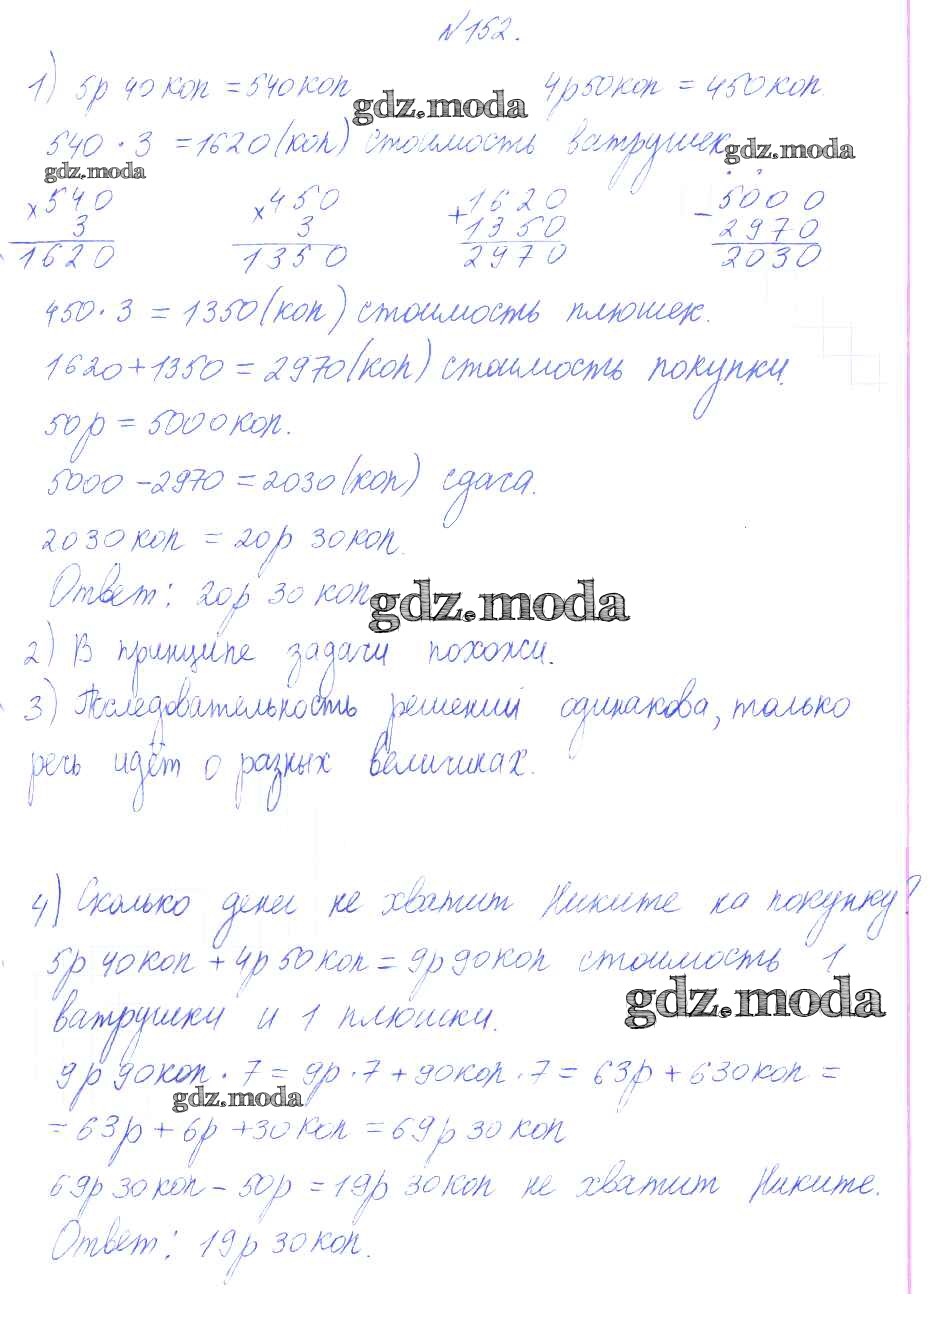 №152.
1) 5р 40 коп = 540 коп 4р 50 коп = 450 коп
gdz.moda
540 · 3 = 1620 (коп) стоимость ватрушек
gdz.moda
gdz.moda
× 540 × 450 + 1620 - 5000
3 3 1350 2970
1620 1350 2970 2030
450 · 3 = 1350 (коп) стоимость плюшек.
1620 + 1350 = 2970 (коп) стоимость покупки.
50р = 5000 коп.
5000 - 2970 = 2030 (коп) сдача.
2030 коп = 20р 30 коп.
Ответ: 20р 30 коп
gdz.moda
2) В принципе задачи похожи.
3) Последовательность решений одинакова, только
речь идёт о разных величинах.
4) Сколько денег не хватит Никите на покупку?
5р 40 коп + 4р 50 коп = 9р 90 коп стоимость 1
gdz.moda
ватрушки и 1 плюшки.
9р 90 коп · 7 = 9р · 7 + 90 коп · 7 = 63р + 630 коп =
gdz.moda
= 63р + 6р + 30 коп = 69р 30 коп
69р 30 коп - 50р = 19р 30 коп не хватит Никите.
Ответ: 19р 30 коп.